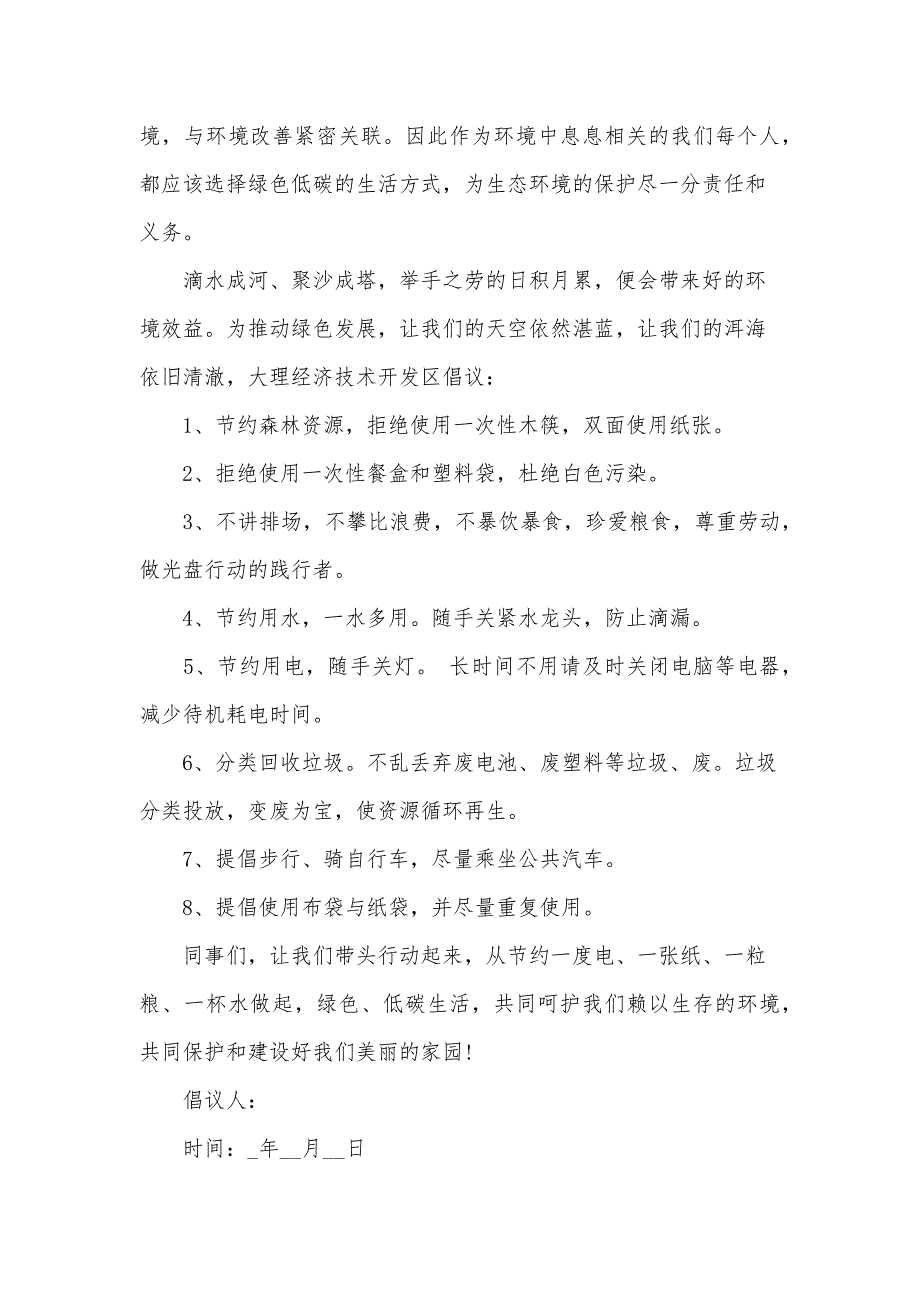 境，与环境改善紧密关联。因此作为环境中息息相关的我们每个人，
都应该选择绿色低碳的生活方式，为生态环境的保护尽一分责任和
义务。
滴水成河、聚沙成塔，举手之劳的日积月累，便会带来好的环
境效益。为推动绿色发展，让我们的天空依然湛蓝，让我们的洱海
依旧清澈，大理经济技术开发区倡议：
1、节约森林资源，拒绝使用一次性木筷，双面使用纸张。
2、拒绝使用一次性餐盒和塑料袋，杜绝白色污染。
3、不讲排场，不攀比浪费，不暴饮暴食，珍爱粮食，尊重劳动，
做光盘行动的践行者。
4、节约用水，一水多用。随手关紧水龙头，防止滴漏。
5、节约用电，随手关灯。 长时间不用请及时关闭电脑等电器，
减少待机耗电时间。
6、分类回收垃圾。不乱丢弃废电池、废塑料等垃圾、废。垃圾
分类投放，变废为宝，使资源循环再生。
7、提倡步行、骑自行车，尽量乘坐公共汽车。
8、提倡使用布袋与纸袋，并尽量重复使用。
同事们，让我们带头行动起来，从节约一度电、一张纸、一粒
粮、一杯水做起，绿色、低碳生活，共同呵护我们赖以生存的环境，
共同保护和建设好我们美丽的家园!
倡议人：
时间：_年__月__日